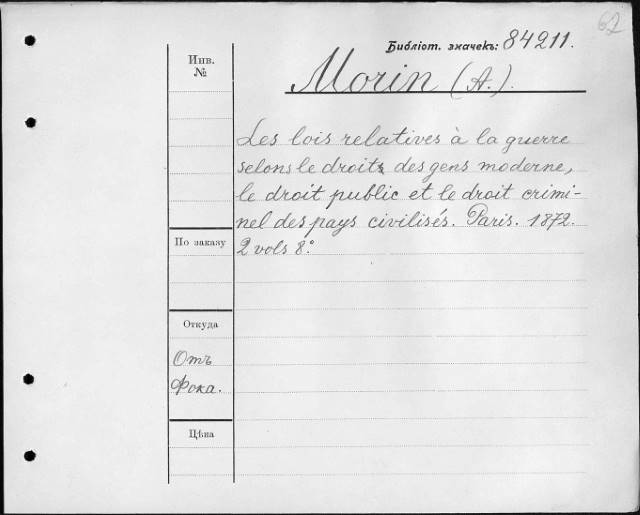 62
Библіот. значекъ: 84211.
Инв.
№
Morin (A.).
Les lois relatives à la guerre
selons le droitz des gens moderne,
le droit public et le droit crimi-
nel des pays civilisés. Paris. 1872.
По заказу
2 vols 8°.
Откуда
Отъ
Фока.
Цѣна